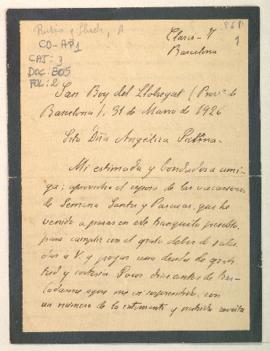 Rubió y Lluch, A
CO-AP1
CAJ: 3
DOC: 805
FOL: 2
Claris - 7
Barcelona
San Boy del Llobregat (Prov.ª de
Barcelona), 31 de Marzo de 1926
Srta Dña Angélica Palma.
Mi estimada y bondadosa ami-
ga: aprovecho el reposo de las vacaciones
de Semana Santa y Pascuas, que he
venido a pasar en este tranquilo pueblo,
para cumplir con el grato deber de salu-
dar a V. y pagar una deuda de grati-
tud y cortesía. Pocos días antes de
con
un número de la estimante y nutrida revista